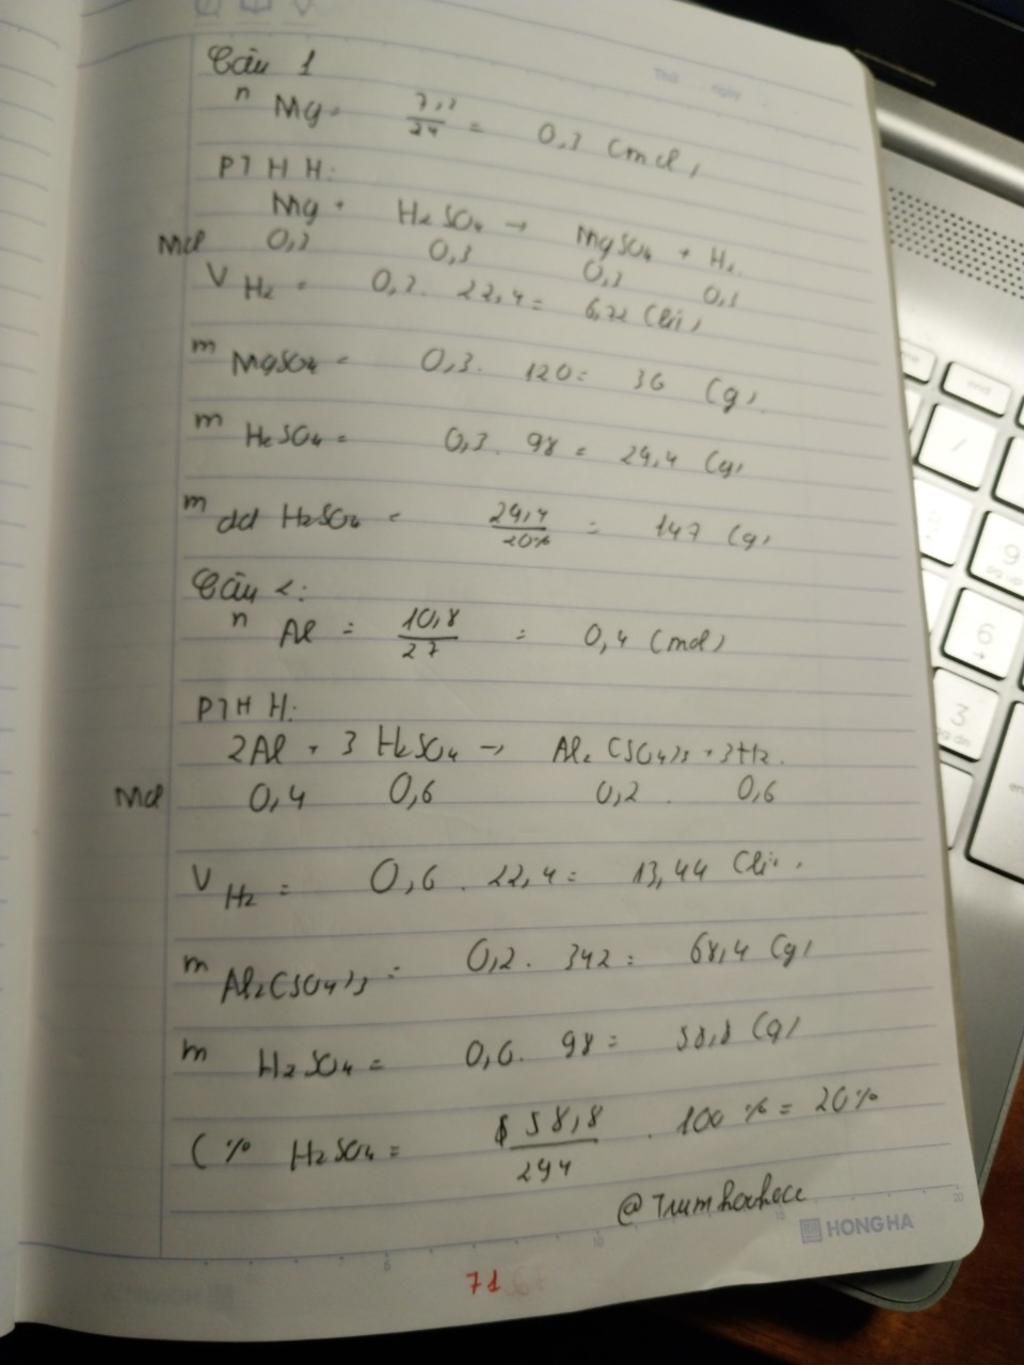 Câu 1
n Mg = 7,2/24 = 0,3 (mol)
PTHH:
Mg + H2SO4 → MgSO4 + H2
Mol 0,3 0,3 0,3 0,3
V H2 = 0,3 . 22,4 = 6,72 (lít)
m MgSO4 = 0,3 . 120 = 36 (g)
m H2SO4 = 0,3 . 98 = 29,4 (g)
m dd H2SO4 = 29,4/20% = 147 (g)
Câu 2:
n Al = 10,8/27 = 0,4 (mol)
PTHH:
2Al + 3H2SO4 → Al2(SO4)3 + 3H2.
Mol 0,4 0,6 0,2 0,6
V H2 = 0,6 . 22,4 = 13,44 (lít)
m Al2(SO4)3 = 0,2 . 342 = 68,4 (g)
m H2SO4 = 0,6 . 98 = 58,8 (g)
C% H2SO4 = 58,8/294 . 100% = 20%
@Trumhoahoc
HONG HA
71
6
9
3